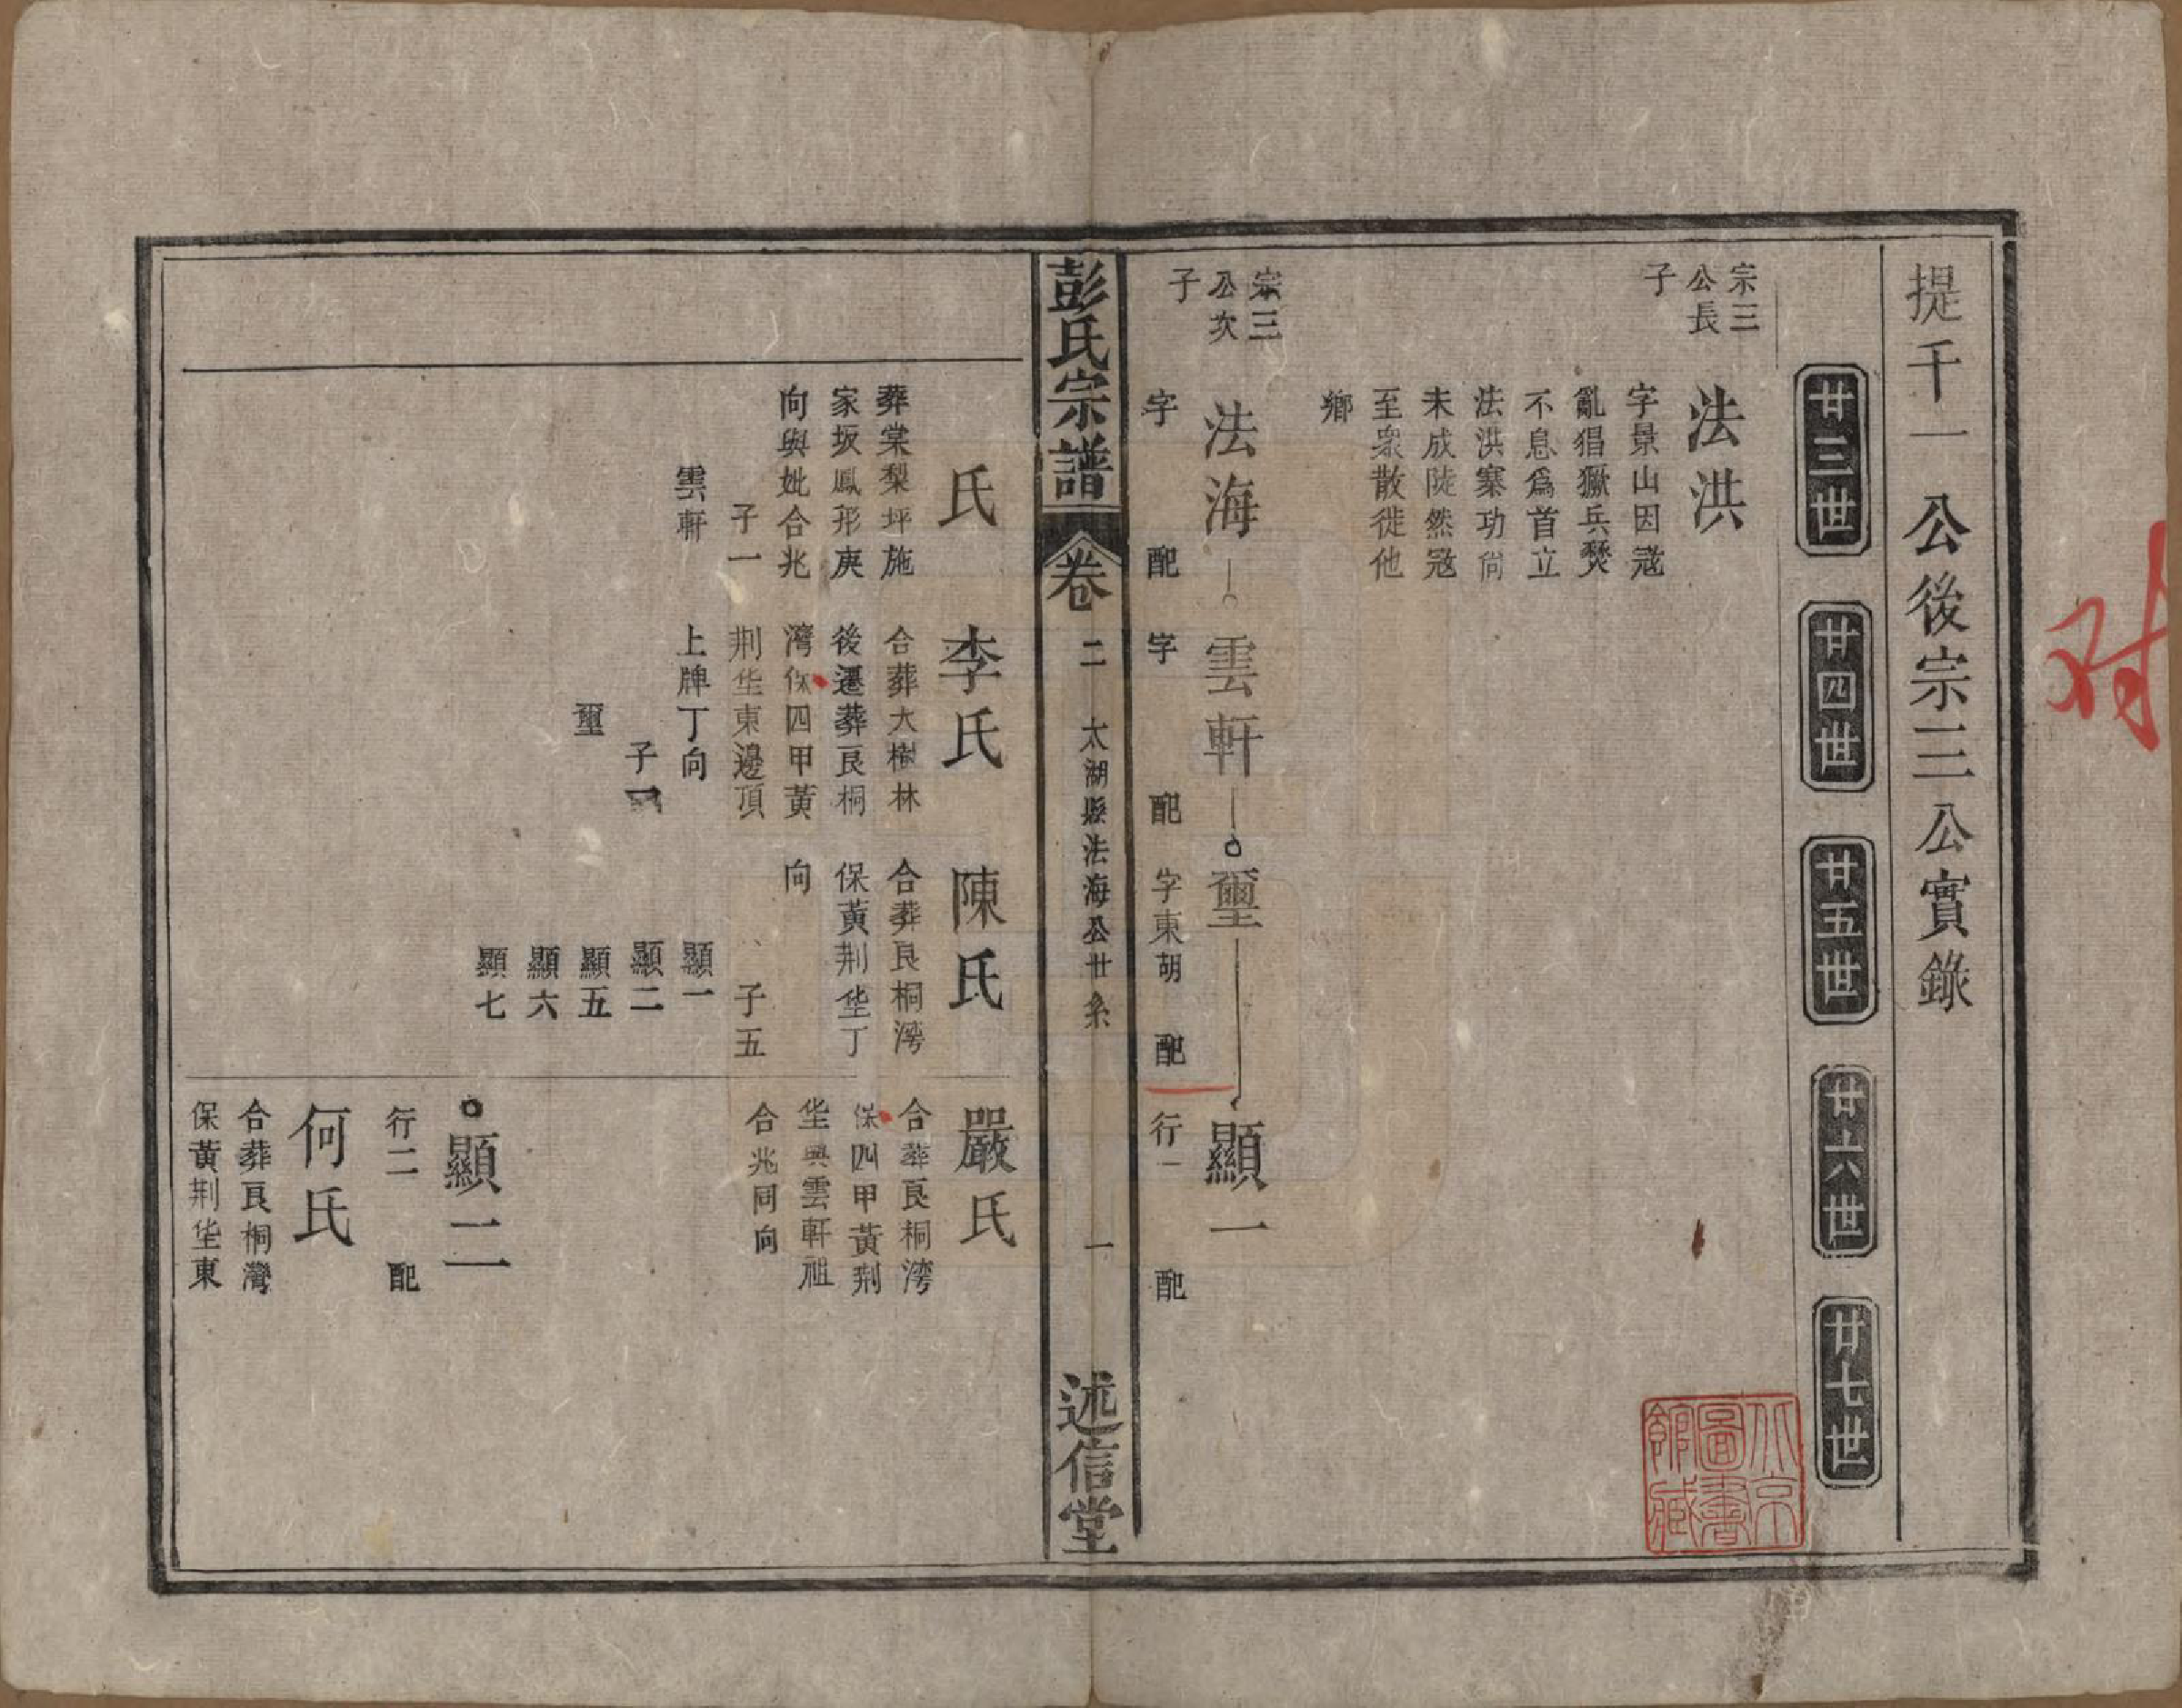 提千一公後宗三公實錄
廿三世
廿四世
廿五世
廿六世
廿七世
宗三
公長
子
法洪
字景山因寇
亂猖獗兵燹
不息爲首立
法洪寨功尙
未成陡然寇
至衆散徙他
鄉
宗三
公次
子
法海
雲軒
璽
顯一
字 配
字 配
字東胡 配
行一 配
彭氏宗譜
卷
二 太湖縣法海公廿系
一
述信堂
氏
葬棠梨坪施
家坂鳳形庚
向與妣合兆
子一
雲軒
李氏
合葬大樹林
後遷葬良桐
灣保四甲黃
荆垈東邊頂
上牌丁向
子一
璽
陳氏
合葬良桐灣
保黃荆垈丁
向
子五
顯一
顯二
顯五
顯六
顯七
嚴氏
合葬良桐灣
保四甲黃荆
垈與雲軒祖
合兆同向
顯二
行二 配
何氏
合葬良桐灣
保黃荆垈東
北京
圖書
館藏